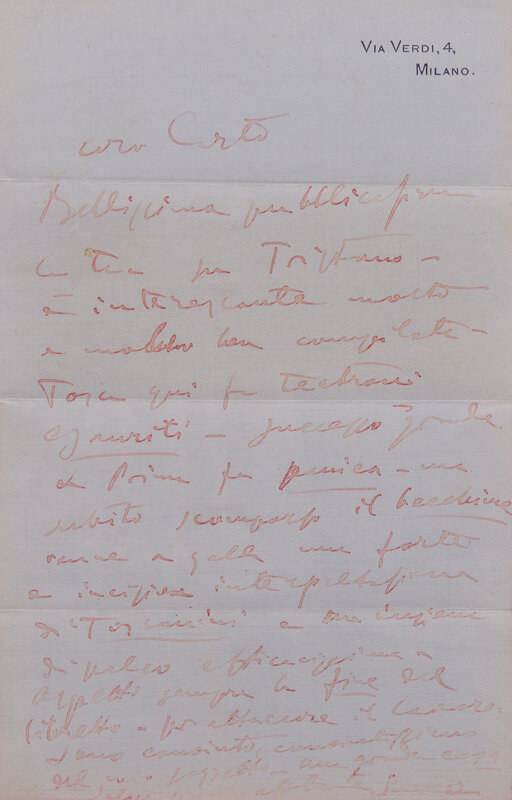 VIA VERDI, 4,
MILANO.
caro
Bellissima pubblicazione
la tua su Tristano –
è interessante molto
e molto ben compilata –
Tosca qui fa teatroni
esauriti – successo grande.
La Prima fu panica – ma
subito scomparso il becchino
venne a galla una forte
e incisiva interpretazione
di Toscanini e un insieme
di palco efficacissimo –
Aspetto sempre la fine del
libretto – per attaccare il lavoro.
Sono convinto
del mio soggetto – una grande cosa